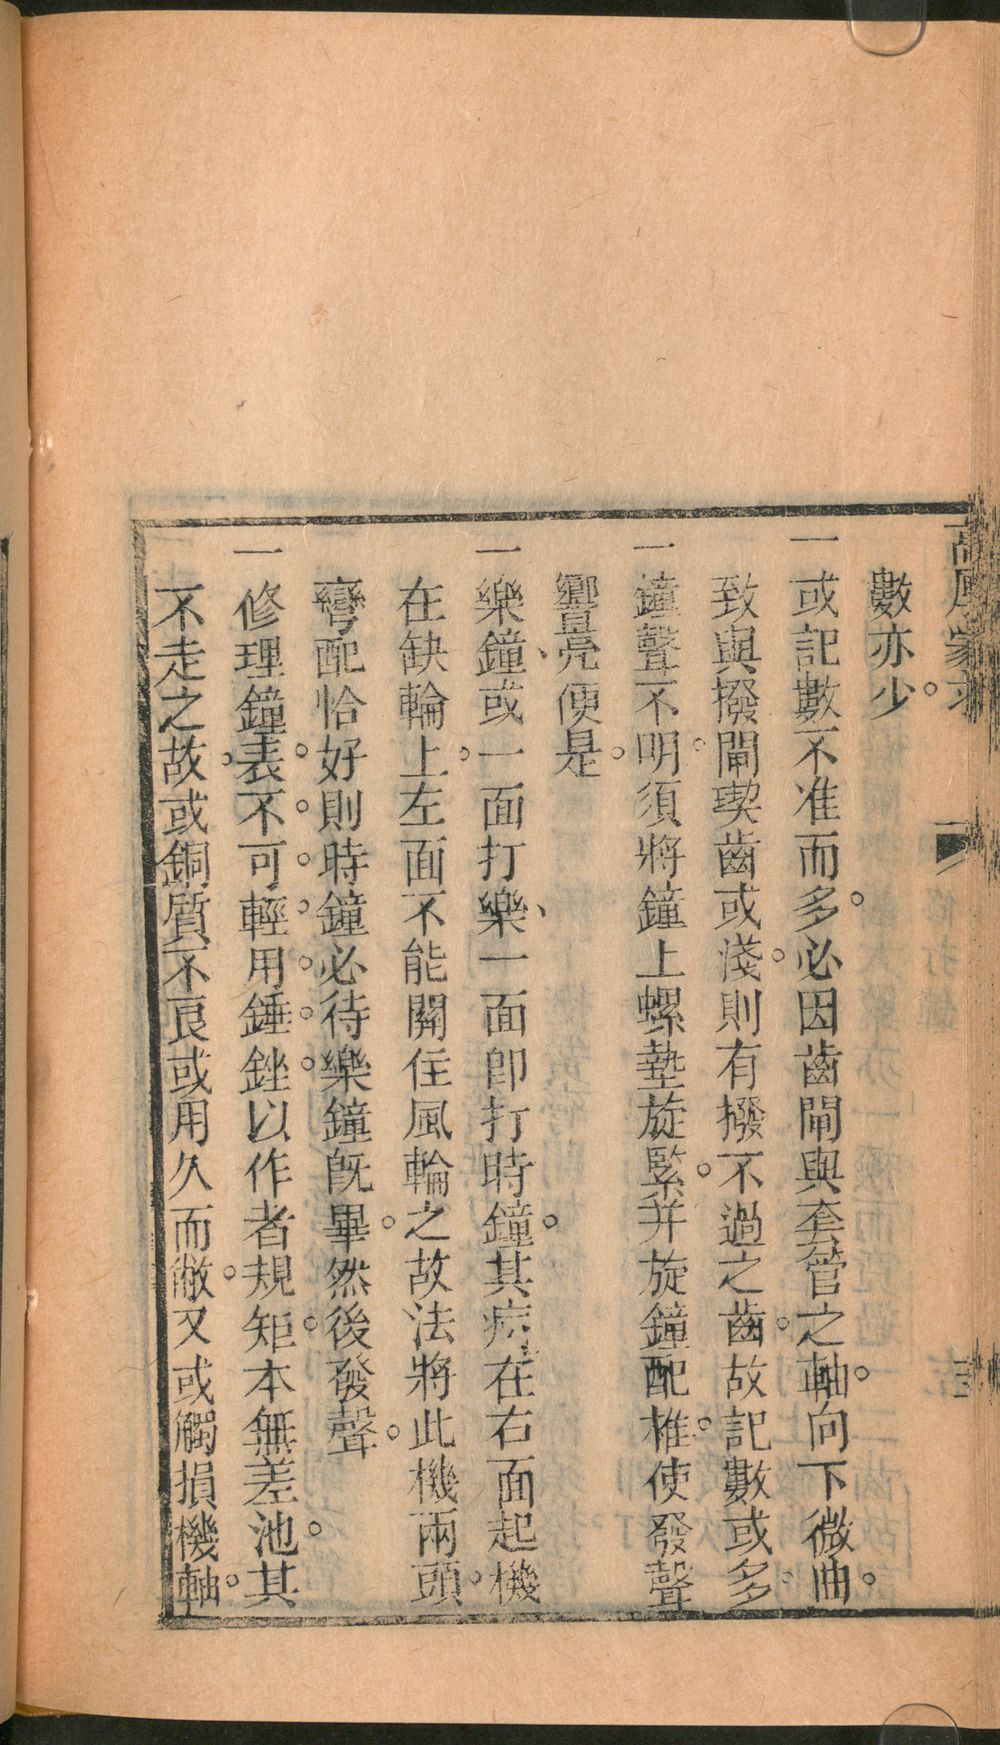 數亦少。
一或記數不准而多。必因齒閘與套管之軸。向下微曲。
致與撥閘契齒或淺。則有撥不過之齒。故記數或多。
一鐘聲不明。須將鐘上螺墊旋緊。并旋鐘配椎。使發聲
響亮便是。
一樂鐘、或一面打樂、一面卽打時鐘。其病在右面起機
在缺輪上。左面不能關住風輪之故。法將此機兩頭。
彎配恰好。則時鐘必待樂鐘旣畢。然後發聲。
一修理鐘表。不。可。輕。用。錘。銼。以作者規矩。本無差池。其
不走之故。或銅質不良。或用久而敝。又或觸損機軸。